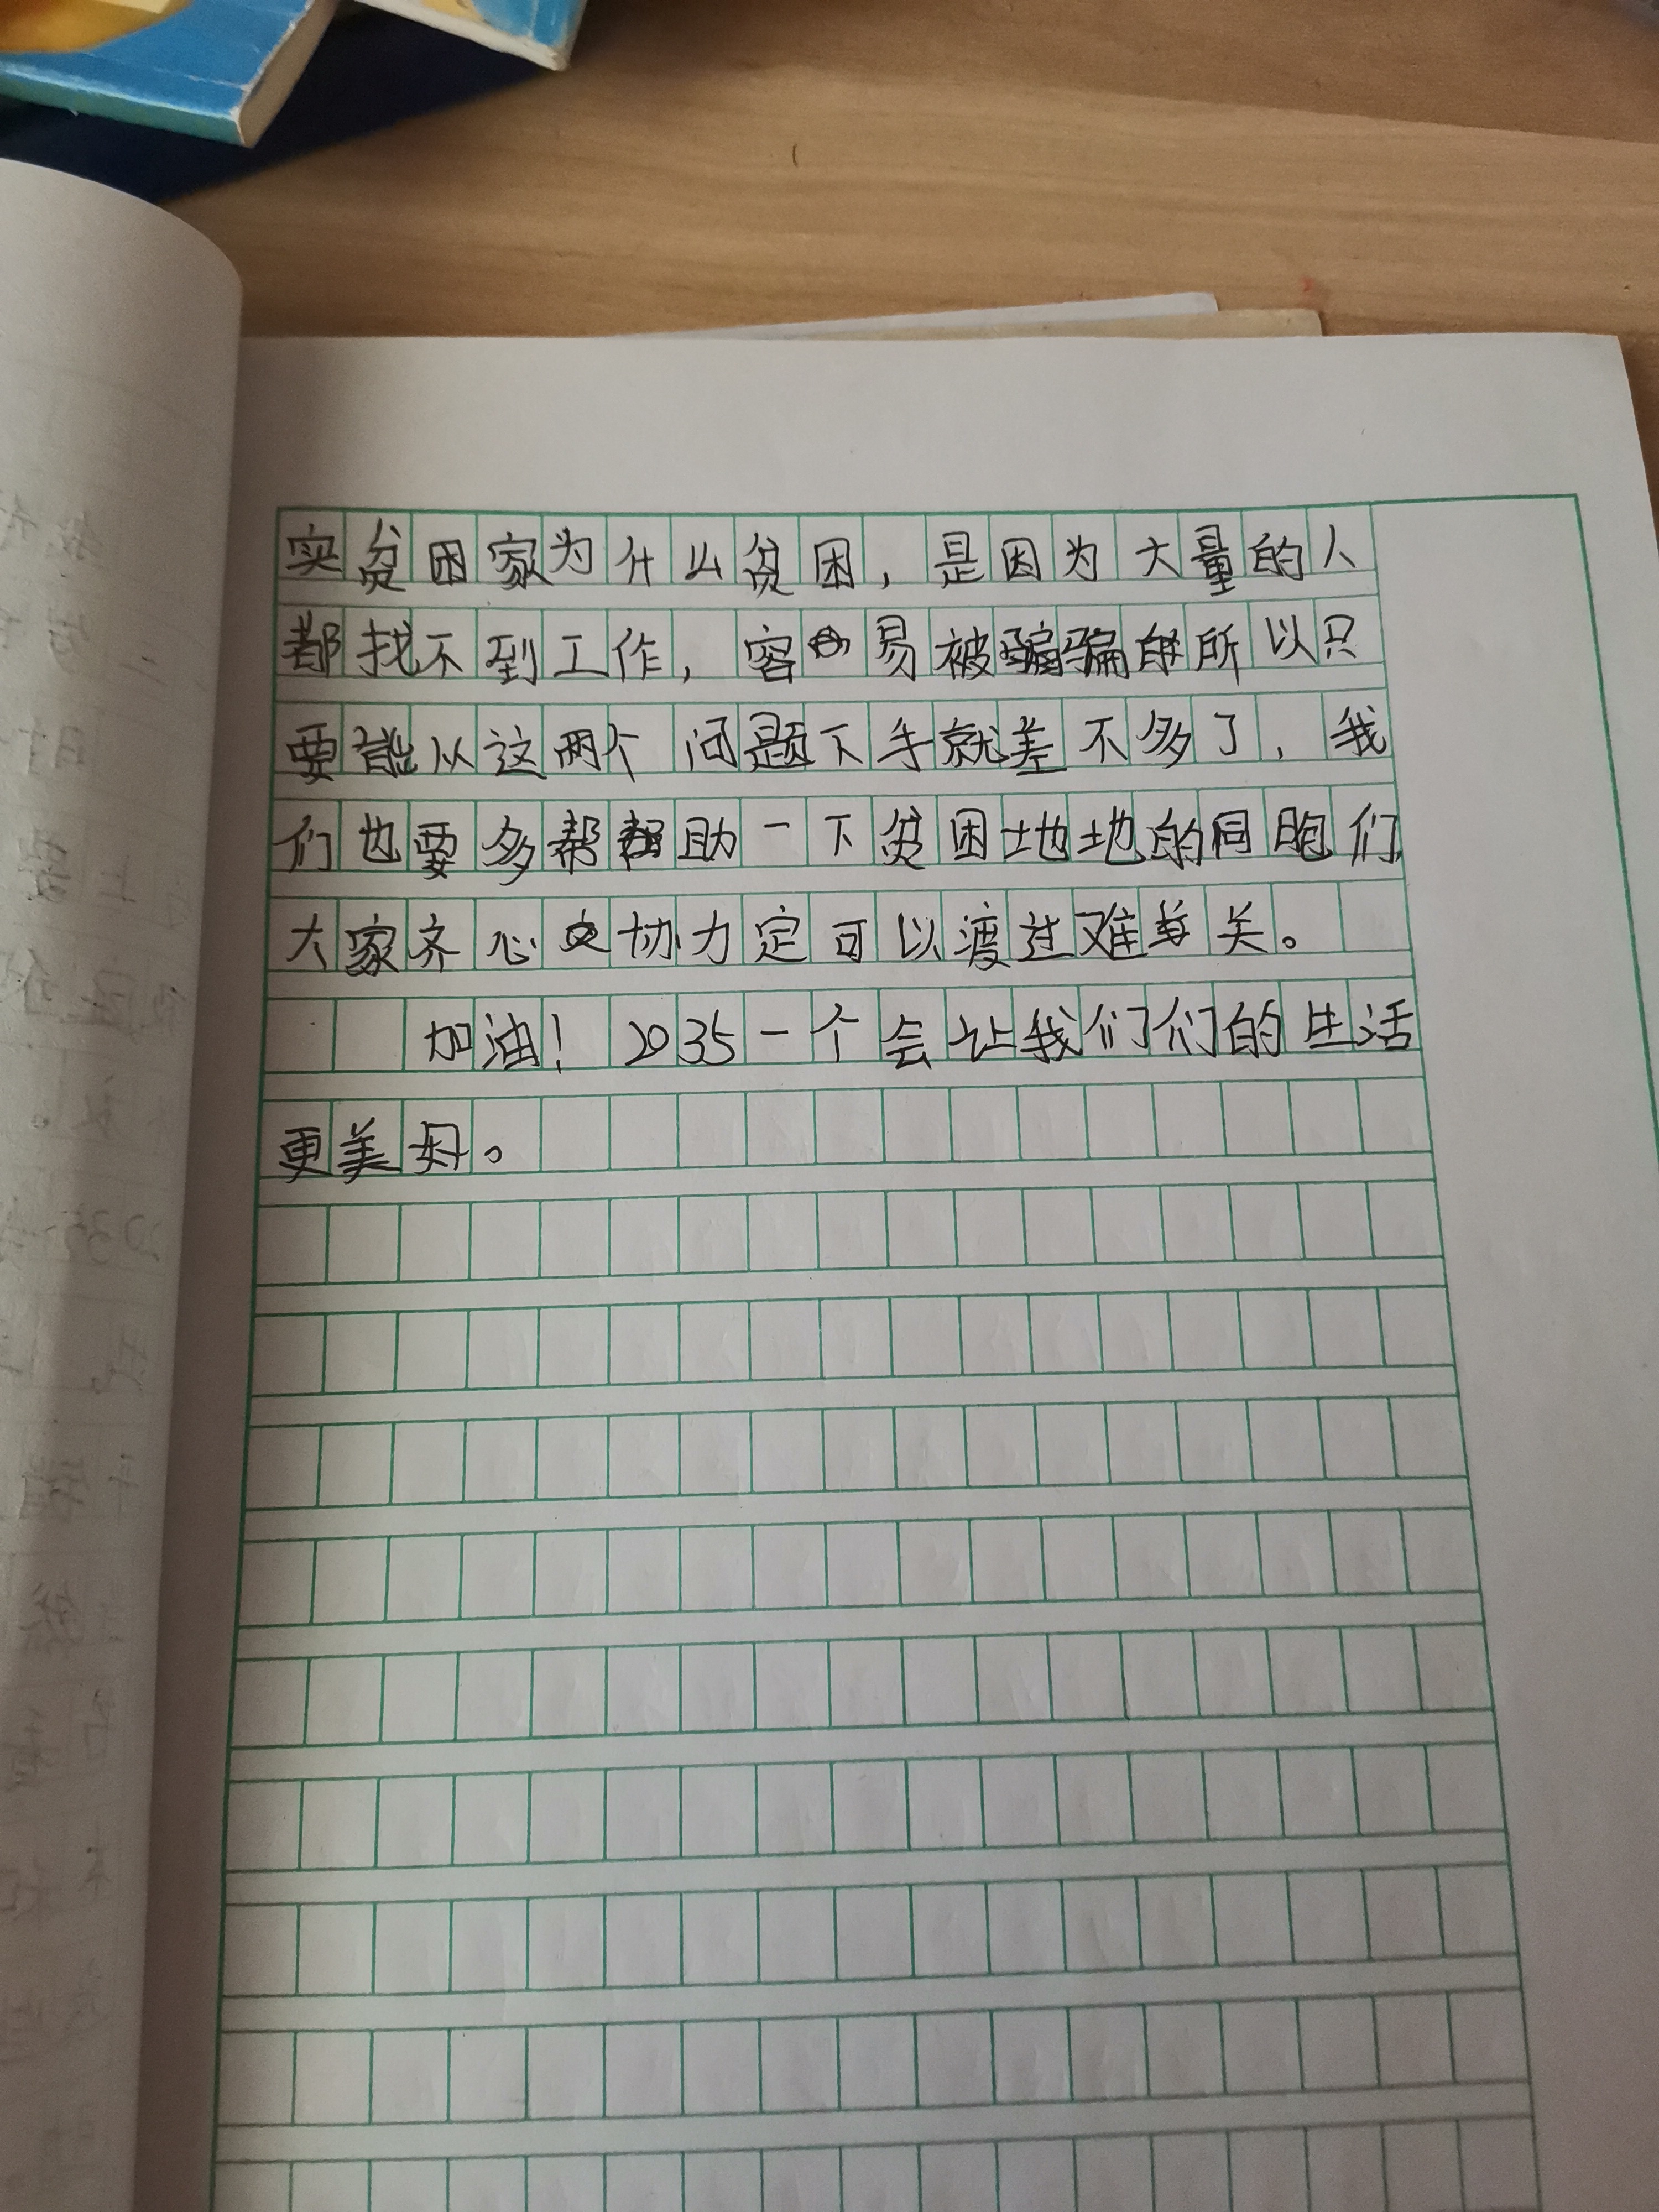 实贫困家为什么贫困，是因为大量的人
都找不到工作，容易被骗骗所以只
要能从这两个问题下手就差不多了，我
们也要多帮助一下贫困地地的同胞们，
大家齐心协力定可以渡过难关。
加油！2035一个会让我们们的生活
更美好。